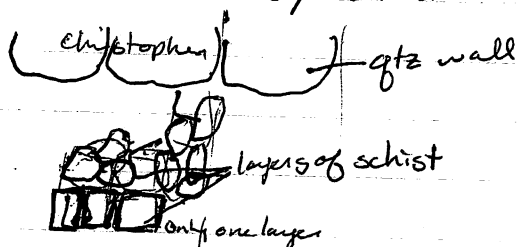 christopher
qtz wall
layers of schist
only one layer